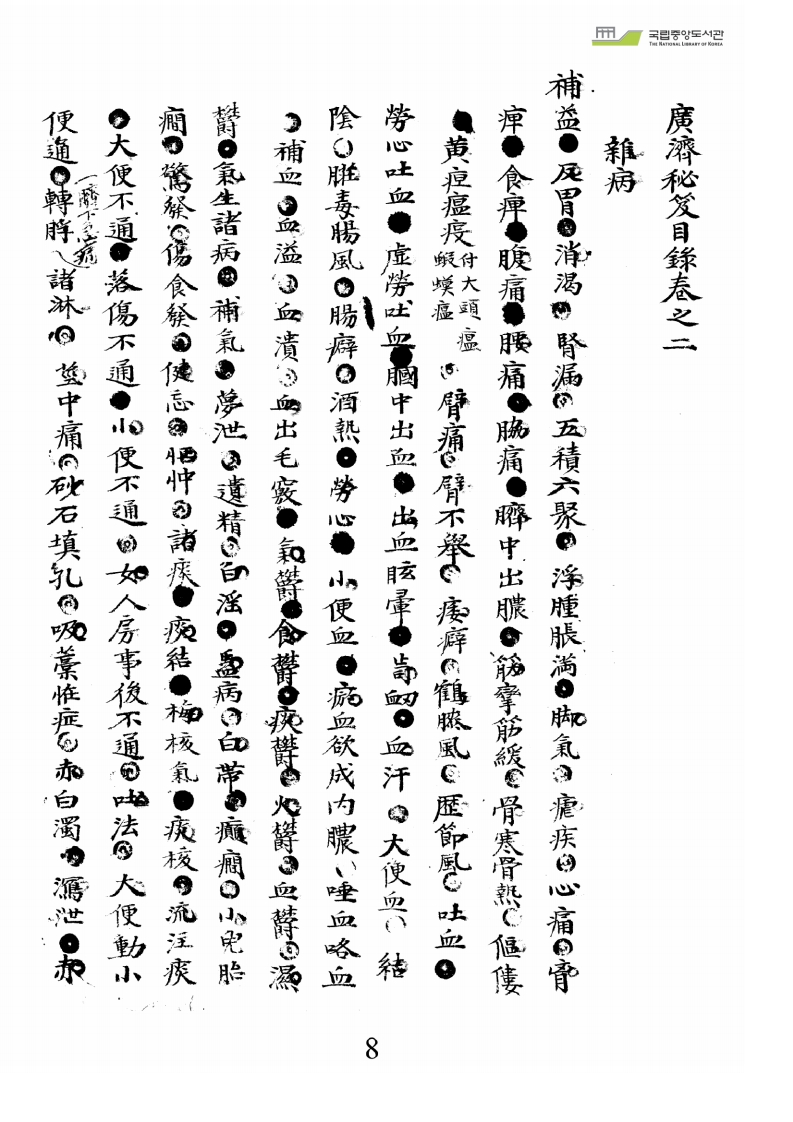 국립중앙도서관
THE NATIONAL LIBRARY OF KOREA
廣濟秘笈目錄卷之二
雜病
補益●反胃●消渴●腎漏●五積六聚●浮腫脹滿●脚氣●瘧疾●心痛●脊
痺●食痺●腹痛●腰痛●脇痛●臍中出膿●筋攣筋緩●骨寒骨熱●傴僂
●黃疸瘟疫付大頭瘟蝦蟆瘟●臂痛●臂不舉●痿癖●鶴膝風●歷節風●吐血●
勞心吐血●虛勞吐血●膕中出血●出血眩暈●齒衄●血汗●大便血●結
陰●臟毒腸風●腸癖●酒熱●勞心●小便血●瘀血欲成內膿●唾血咯血
●補血●血溢●血潰●血出毛竅●氣鬱●食鬱●痰鬱●火鬱●血鬱●濕
鬱●氣生諸病●補氣●夢泄●遺精●白淫●蠱病●白帶●癲癇●小兒胎
癇●驚發●傷食發●健忘●怔忡●諸痰●痰結●梅核氣●痰核●流注痰
●大便不通●落傷不通●小便不通●女人房事後不通●吐法●大便動小
便通●轉脬●諸淋●莖中痛●砂石填乳●吸藁恠症●赤白濁●瀉泄●赤
8